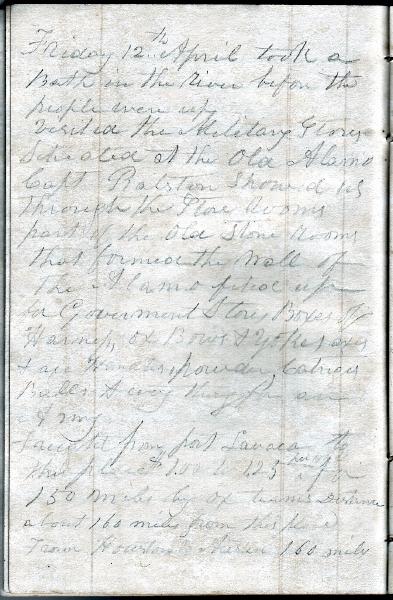 Friday 12th April took a
Bath in the River befor the
people were up
Visited the Military Stores
Situated at the Old Alamo
Capt Ralston Showed us
through the Store Rooms
part of the Old Stone Rooms
that formed the Wall of
the Alamo fited up
for Goverment Stores Boxes of
Harness, Ox Bows & Yokes axes
& axe Handles, powder, Catriges
Balls & every thing for an
Army
Freight from port Lavaca to
this place $1.00 to 1.25 for
150 miles by ox teams Distance
about 160 miles from this place
From Houston to 160 miles